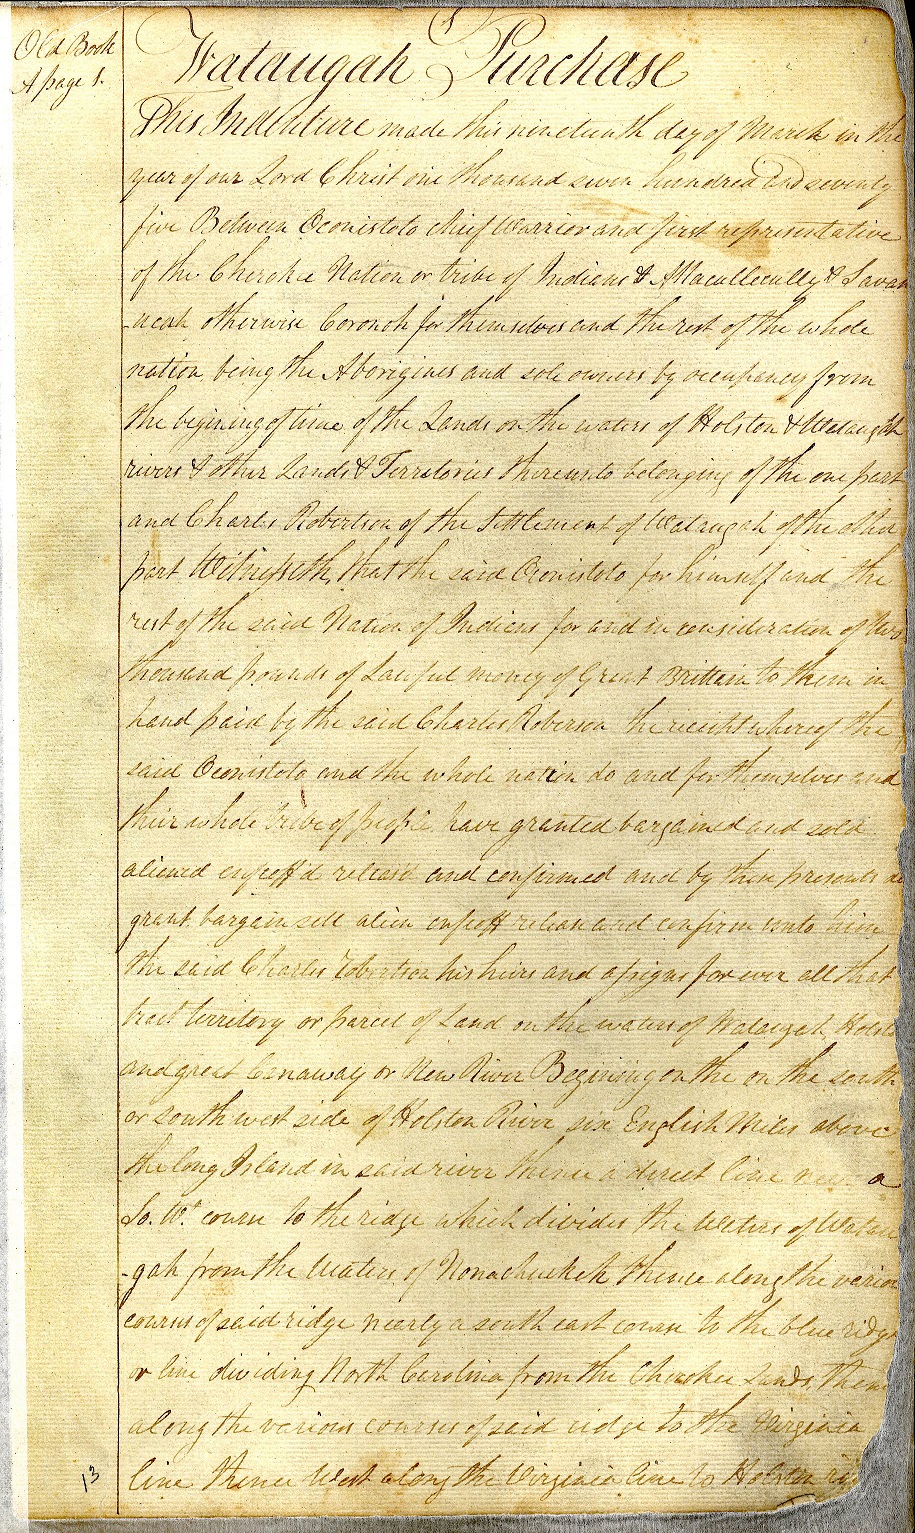 Old Book
A page 1.
Wataugah Purchase
This Indenture made this nineteenth day of March in the
year of our Lord Christ one thousand seven hundred and seventy
five Between Oconistoto chief Warrior and first representative
of the Cherokee Nation or tribe of Indians & Attacullecully & Savan
-neah otherwise Coronoh for themselves and the rest of the whole
nation, being the Aborigines and sole owners by occupancy from
the begining of time of the Lands on the waters of Holston & Wataugah
rivers & other Lands & Territories thereunto belonging of the one part
and Charles Robertson of the Settlement of Wataugah of the other
part Witnesseth, that the said Oconistoto for himself and the
rest of the said Nation of Indians for and in consideration of two
thousand pounds of Lawful money of Great Brittain to them in
hand paid by the said Charles Roberson the receipt whereof the
said Oconistoto and the whole nation do and for themselves and
their whole tribe of people have granted bargained and sold
aliened enfeoff'd releas'd and confirmed and by these presents do
grant bargain sell alien enfeoff release and confirm unto him
the said Charles Robertson his heirs and assigns for ever all that
tract territory or parcel of Land on the waters of Wataugah, Holston
and great Canaway or New River Begining on the on the south
or southwest side of Holston River six English Miles above
the long Island in said river thence a direct line near a
So. Wt. course to the ridge which divides the Waters of Watau
-gah from the Waters of Nonachuckeh thence along the various
courses of said ridge nearly a south east course to the blue ridge
or line dividing North Carolina from the Cherokee Lands, thence
along the various courses of said ridge to the Virginia
line thence West along the Virginia line to Holston riv
13